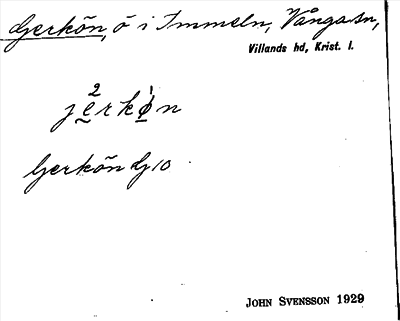 Gerkön, ö i Immeln, Vånga sn,
Villands hd, Krist. l.
jerkön
Gerkön Gj 10
JOHN SVENSSON 1929